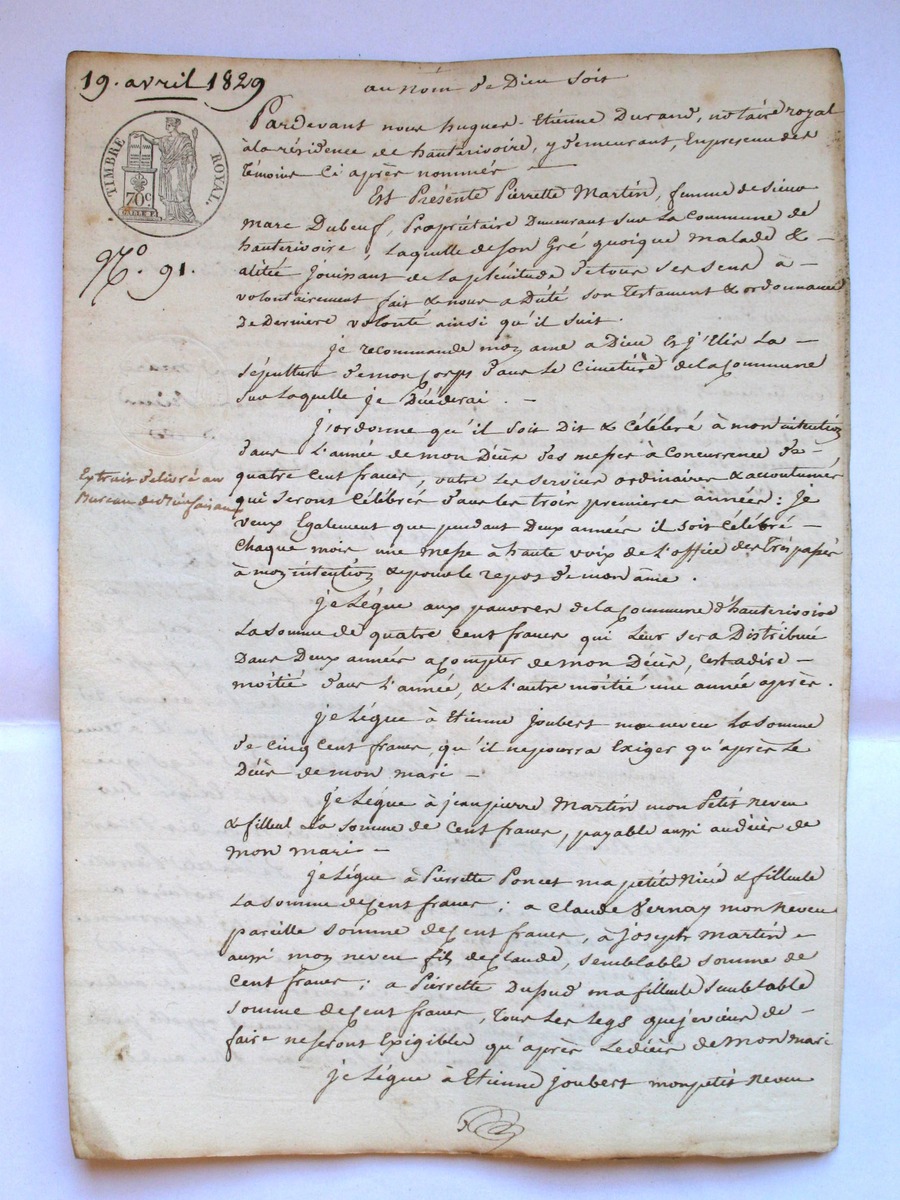 19. avril 1829
au nom de Dieu soit
TIMBRE ROYAL.
70c
No. 91.
Pardevant nous hugues-Etienne Durand, notaire royal
à la résidence de hauterivoire, y demeurant, En presence des
témoins Ci après nommés —
Est Présente Pierrette Martin, femme de sieur
marc Dubeuf, Propriétaire Demeurant sur La Commune de
hauterivoire, Laquelle de son Gré quoique malade & —
alitée jouissant de la plénitude de tous ses sens à —
volontairement fait & nous a Dicté son testament & ordonnance
de Derniere volonté ainsi qu'il suit.
je recommande mon ame a Dieu & j'Elis La —
sépulture de mon Corps dans Le Cimetière de la Commune
sur Laquelle je Décéderai. —
J'ordonne qu'il soit Dit & Célébré à mon intention
dans L'année de mon Décès des messes à Concurrence de
quatre Cent francs, outre Les services ordinaires & accoutumés
qui seront Célébrés dans les trois premieres années: Je
veux Egalement que pendant Deux années il soit Célébré —
Chaque mois une messe à haute voix de L'office des trépassés
à mon intention & pour le repos de mon âme.
Extrait délivré au
Bureau de Bienfaisance
je Lègue aux pauvres de la Commune d'hauterivoire
La somme de quatre Cent francs qui Leur sera Distribuée
Dans Deux années a Compter de mon Décès, C'est adire —
moitié dans L'année, & L'autre moitié une année après.
je Lègue à Etienne Joubert mon neveu La somme
de cinq Cent francs, qu'il ne pourra Exiger qu'après Le
Décès de mon mari —
je Lègue à jean pierre Martin mon Petit neveu
& filleul La somme de Cent francs, payable aussi au décès de
mon mari —
je Lègue à Pierrette Poncet ma petite Nièce & filleule
La somme de Cent francs; a Claude Vernay mon Neveu
pareille somme de Cent francs, à Joseph Martin —
aussi mon neveu fils de Claude, semblable somme de
Cent francs; a Pierrette Dupud ma filleule semblable
somme de Cent francs, tous Les Legs que je viens de —
faire ne seront Exigibles qu'après Le décès de mon mari
je Lègue à Etienne Joubert mon petit neveu